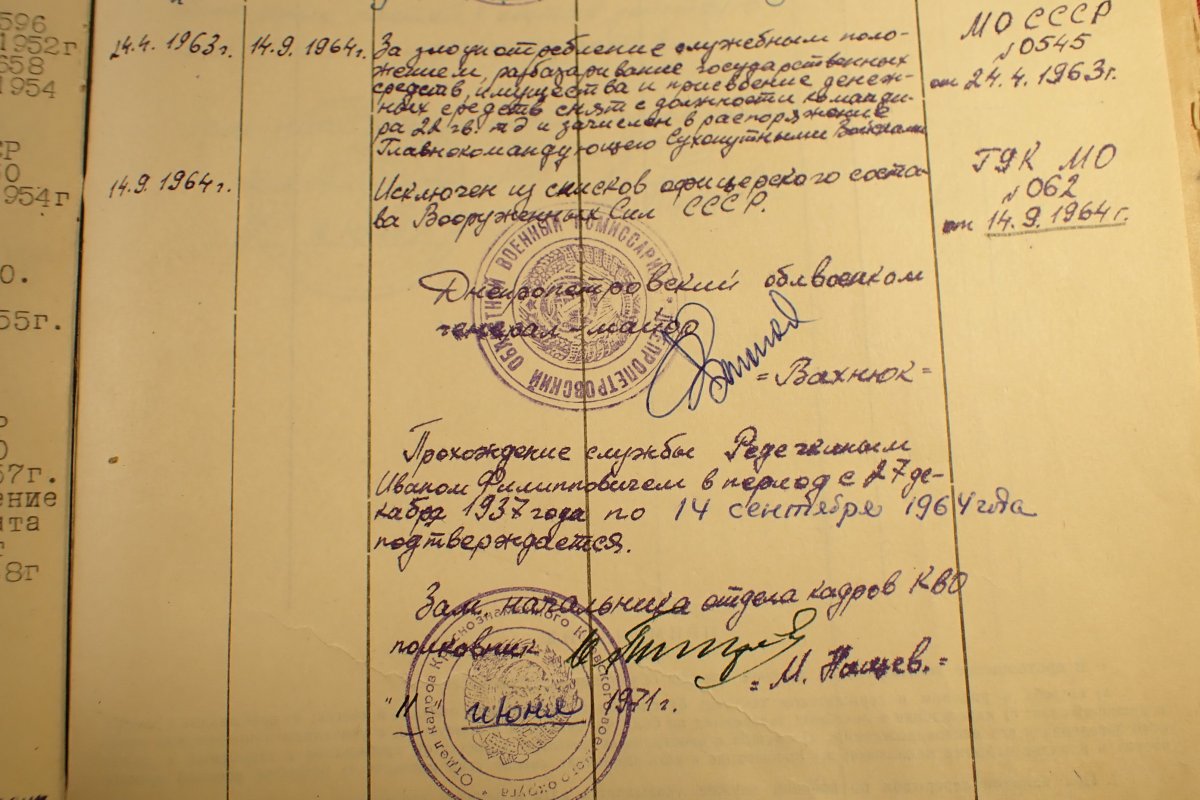 596
1952г
658
1954
СР
50
1954г
0.
55г.
Р
0
57г.
ение
нта
г
8г
24.4. 1963г.
14.9. 1964г.
За злоупотребление служебным поло-
жением, разбазаривание государственных
средств, имущества и присвоение денеж-
ных средств снят с должности команди-
ра 22 гв. тд и зачислен в распоряжение
Главнокомандующего Сухопутными Войсками
МО СССР
№0545
от 24.4.1963г.
14.9.1964г.
Исключен из списков офицерского соста-
ва Вооруженных Сил СССР.
ГУК МО
№062
от 14.9.1964г.
Днепропетровский облвоенком
генерал-майор
=Вахнюк=
ДНЕПРОПЕТРОВСКИЙ ОБЛАСТНОЙ ВОЕННЫЙ КОМИССАРИАТ
Прохождение службы Редечкиным
Иваном Филипповичем в период с 27 де-
кабря 1937 года по 14 сентября 1964 года
подтверждается.
Зам. начальника отдела кадров КВО
полковник
=М. Нащев.=
"11" июня 1971г.
Отдел кадров Краснознаменного Киевского военного округа